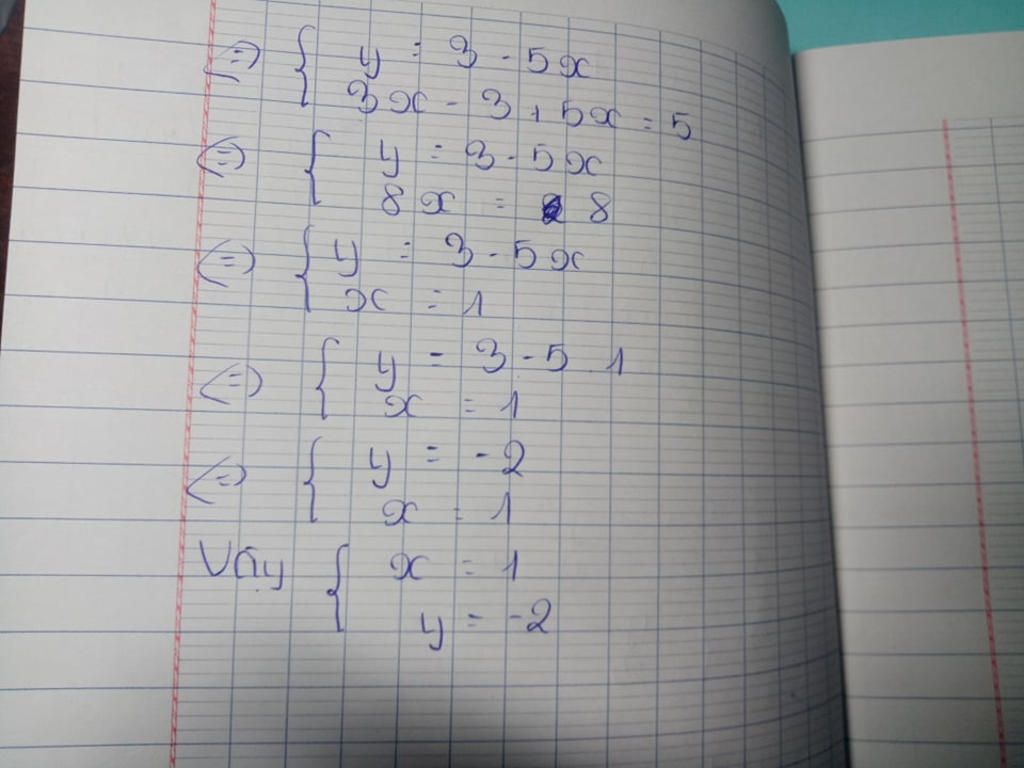 ⇔ { y = 3 - 5x
3x - 3 + 5x = 5
⇔ { y = 3 - 5x
8x = 8
⇔ { y = 3 - 5x
x = 1
⇔ { y = 3 - 5 1
x = 1
⇔ { y = -2
x = 1
Vậy { x = 1
y = -2